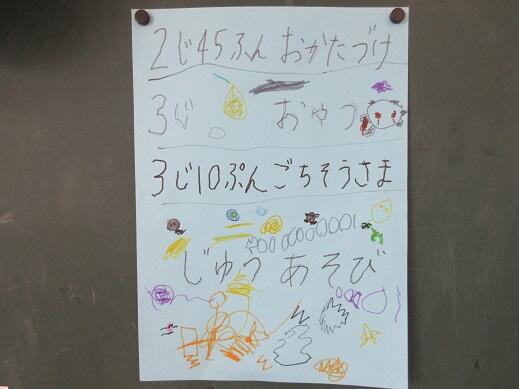 2じ45ふん おかたづけ
3じ おやつ
3じ10ぷんごちそうさま
じゆうあそび